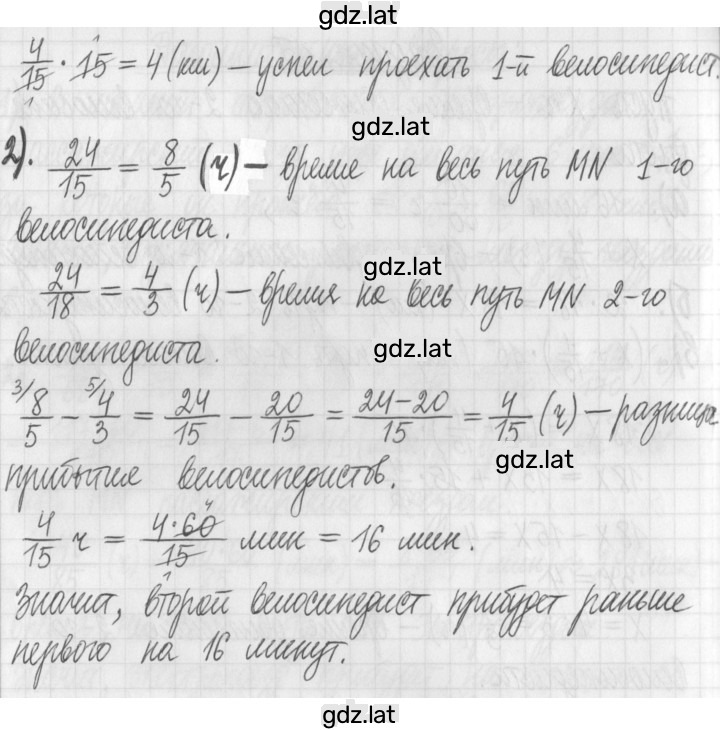 gdz.lat
4/15 · 15 = 4 (км) – успел проехать 1-й велосипедист.
gdz.lat
2). 24/15 = 8/5 (ч) – время на весь путь MN 1-го
велосипедиста.
gdz.lat
24/18 = 4/3 (ч) – время на весь путь MN 2-го
велосипедиста.
gdz.lat
3/ 8/5 – 5/ 4/3 = 24/15 – 20/15 = 24–20/15 = 4/15 (ч) – разница
gdz.lat
прибытие велосипедистов.
4/15 ч = 4·60/15 мин = 16 мин.
Значит, второй велосипедист прибудет раньше
первого на 16 минут.
gdz.lat